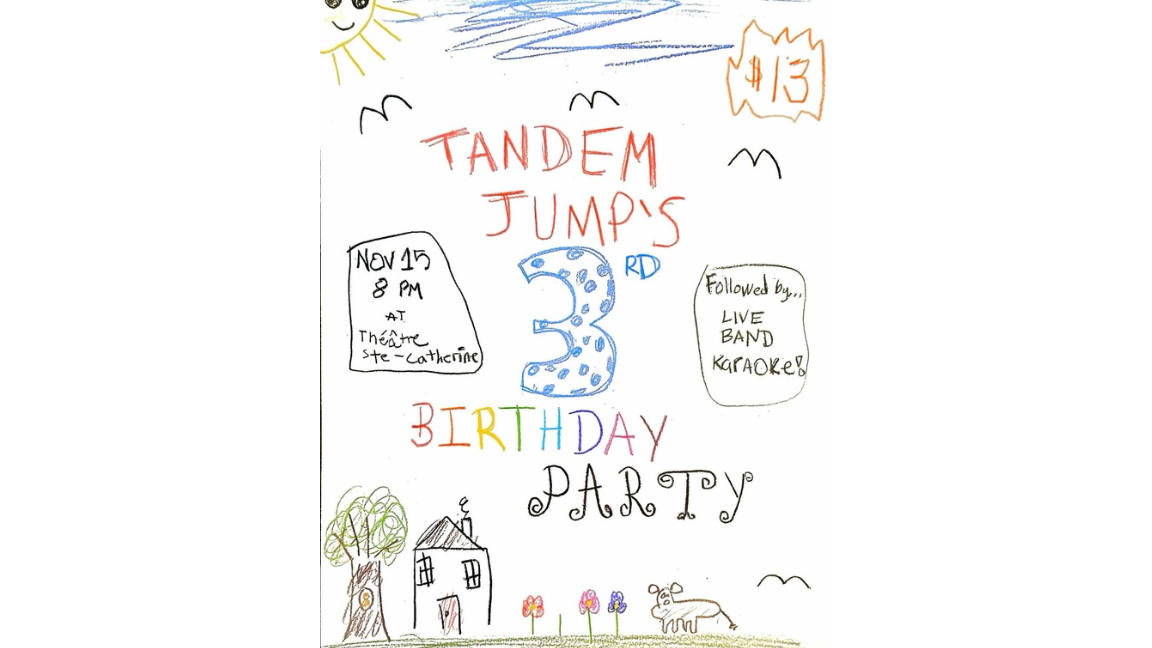 $13
TANDEM
JUMP'S
3RD
NOV 15
8 PM
AT
Théâtre
Ste-Catherine
Followed by...
LIVE
BAND
KARAOKe!
BIRTHDAY
PARTY